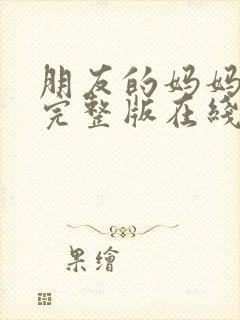 朋友的妈妈
完整版在綫
果繪